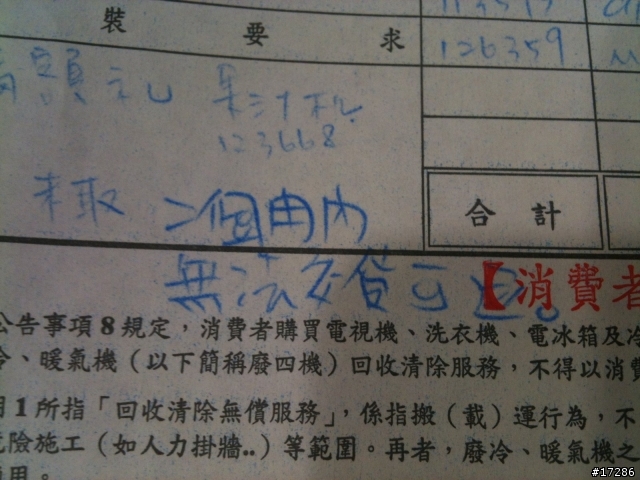 裝 要 求
126359
滿額禮 果汁机
123668
未取 二個月內
合 計
無法交貨可退。
【消費者
公告事項8規定，消費者購買電視機、洗衣機、電冰箱及冷
、暖氣機（以下簡稱廢四機）回收清除服務，不得以消費
1所指「回收清除無償服務」，係指搬（載）運行為，不
危險施工（如人力掛牆..）等範圍。再者，廢冷、暖氣機之
用。
#17286